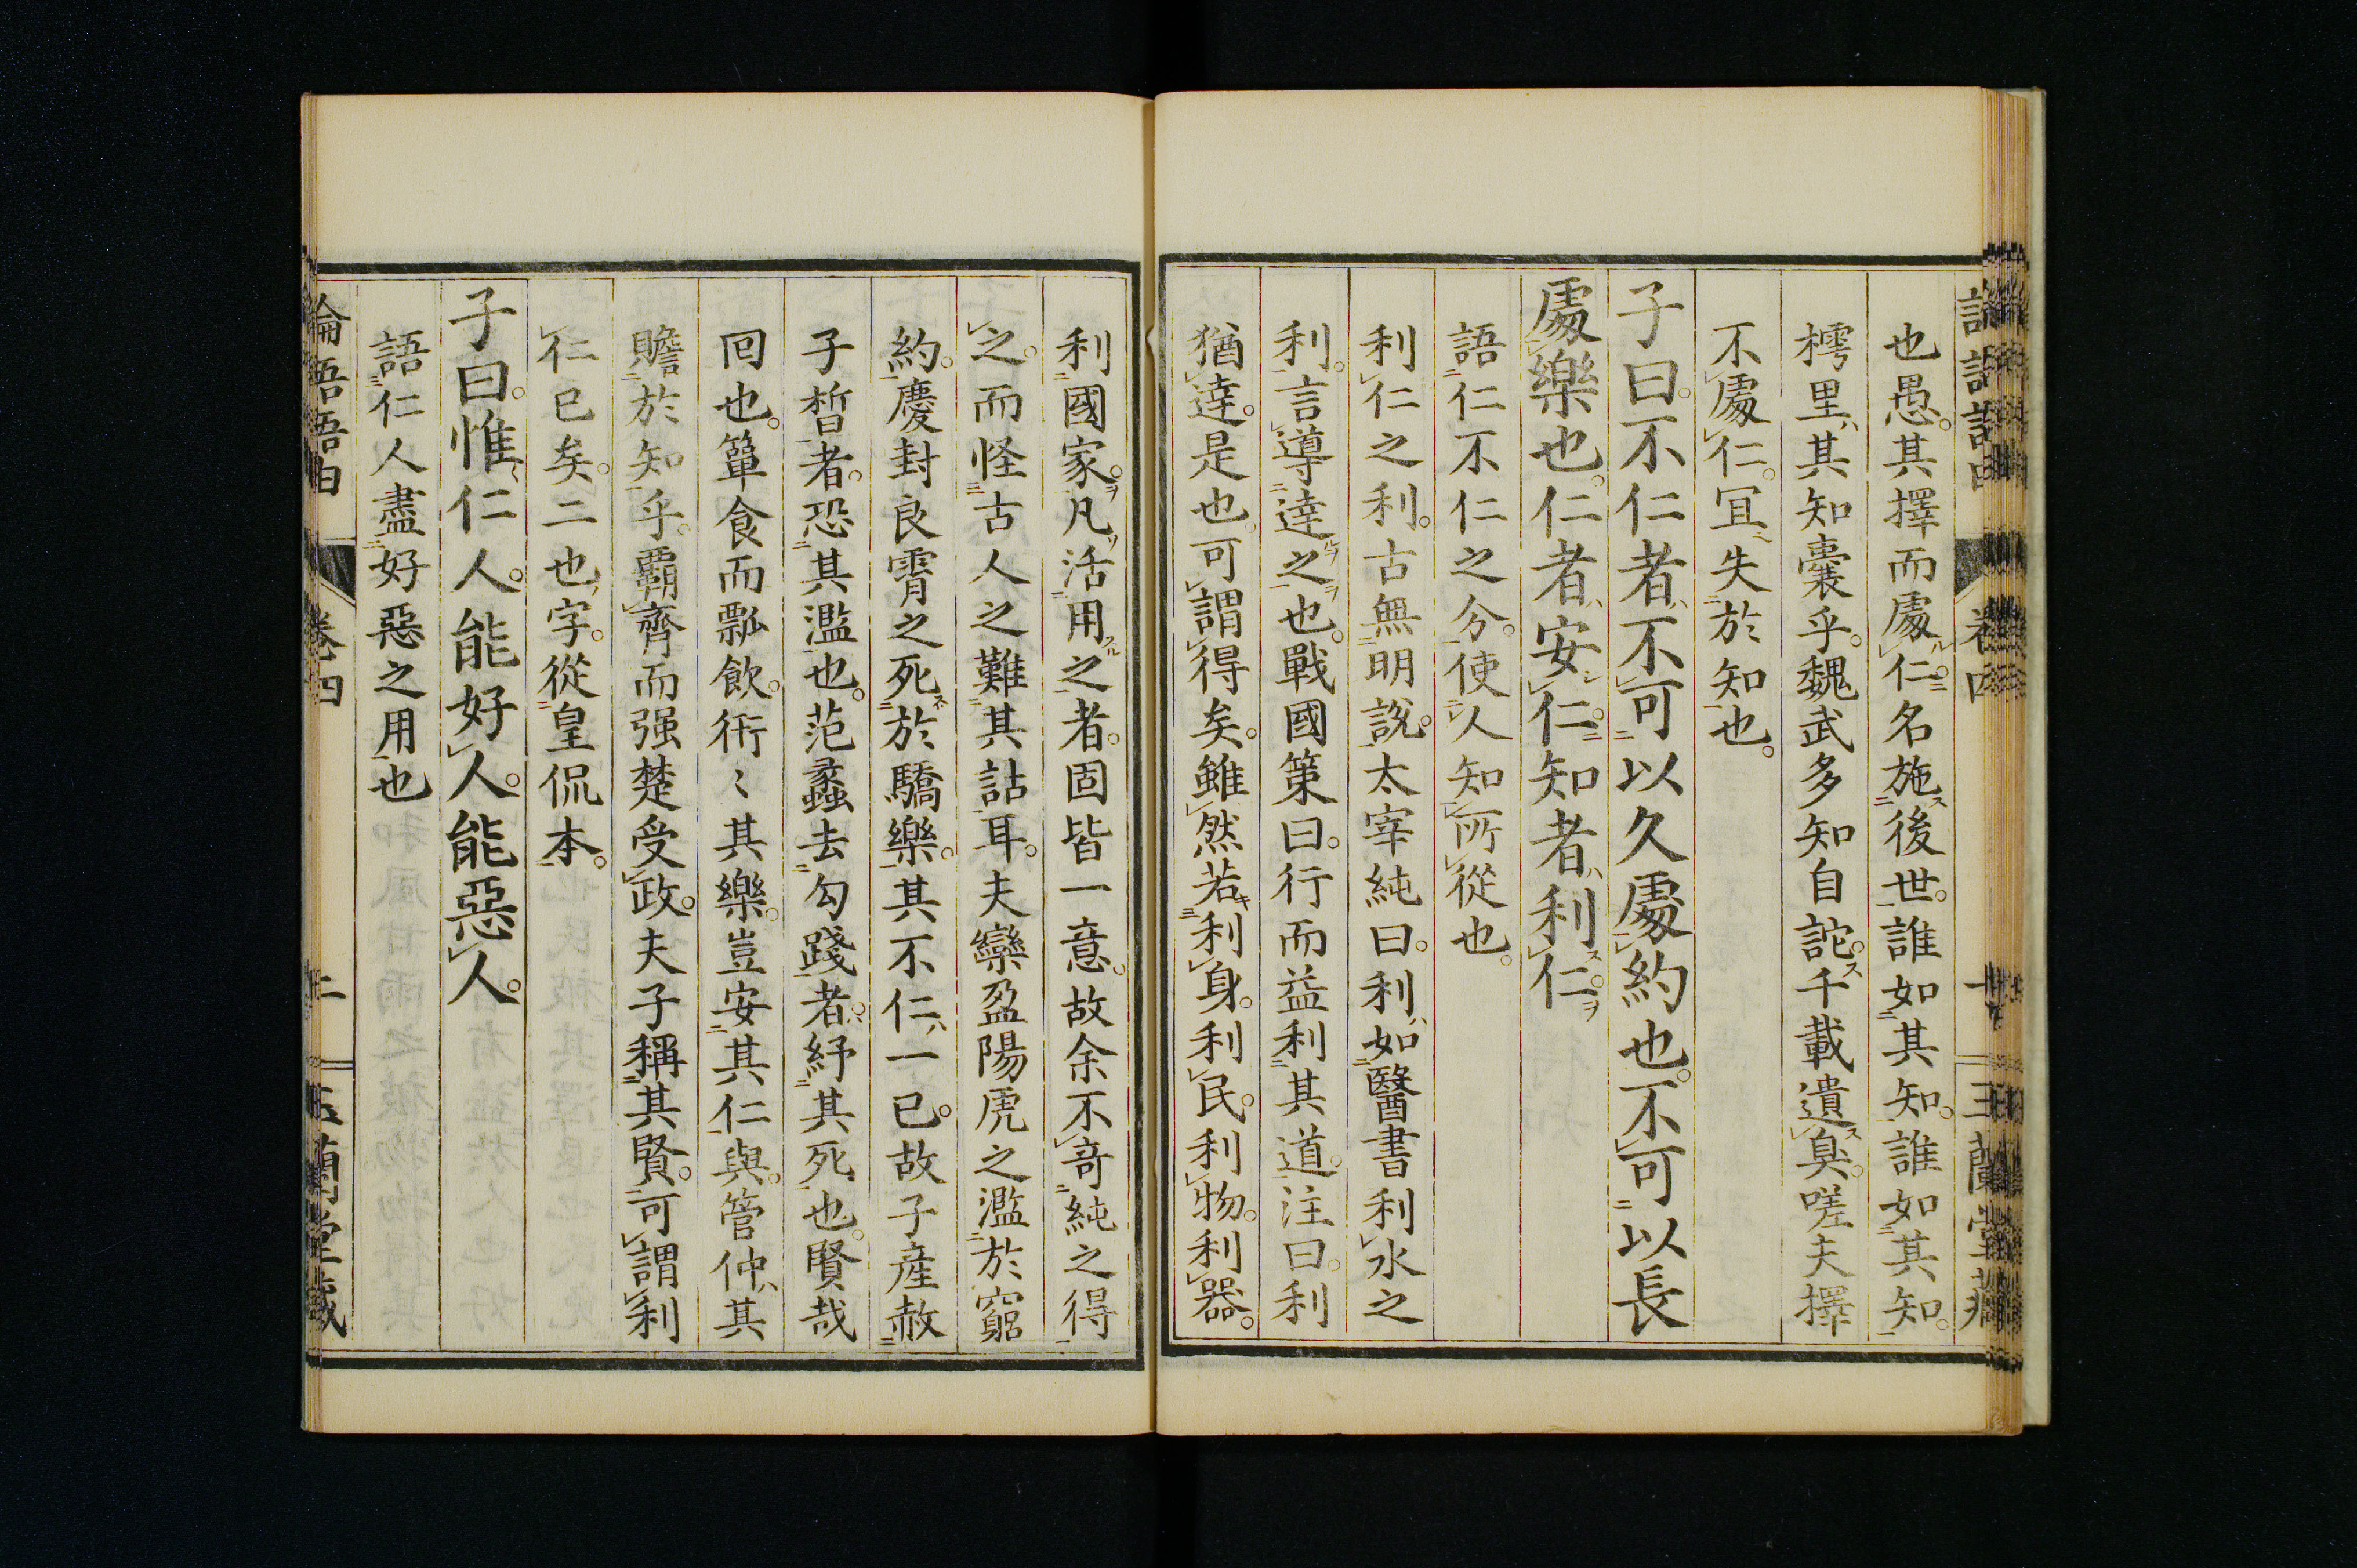 也愚。其擇而處仁。名施後世。誰如其知。誰如其知。
樗里其知囊乎。魏武多知自詫。千載遺臭。嗟夫擇
不處仁。冝失於知也。
子曰。不仁者不可以久處約也。不可以長
處樂也。仁者安仁。知者利仁。
語仁不仁之分。使人知所從也。
利仁之利。古無明說。太宰純曰。利如醫書利水之
利。言導達之也。戰國策曰。行而益利其道。注曰。利
猶達。是也。可謂得矣。雖然若利身。利民。利物。利器。
利國家。凡活用之者。固皆一意。故余不竒純之得
之。而怪古人之難其詁耳。夫欒盈陽虎之濫於窮
約。慶封良霄之死於驕樂。其不仁一已。故子產赦
子晳者。恐其濫也。范蠡去勾踐者。紓其死也。賢哉
囘也。簞食而瓢飲。衎〻其樂。豈安其仁與。管仲其
贍於知乎。覇齊而强楚受政。夫子稱其賢。可謂利
仁已矣。二也字。從皇侃本。
子曰。惟仁人。能好人。能惡人。
語仁人盡好惡之用也
卷四